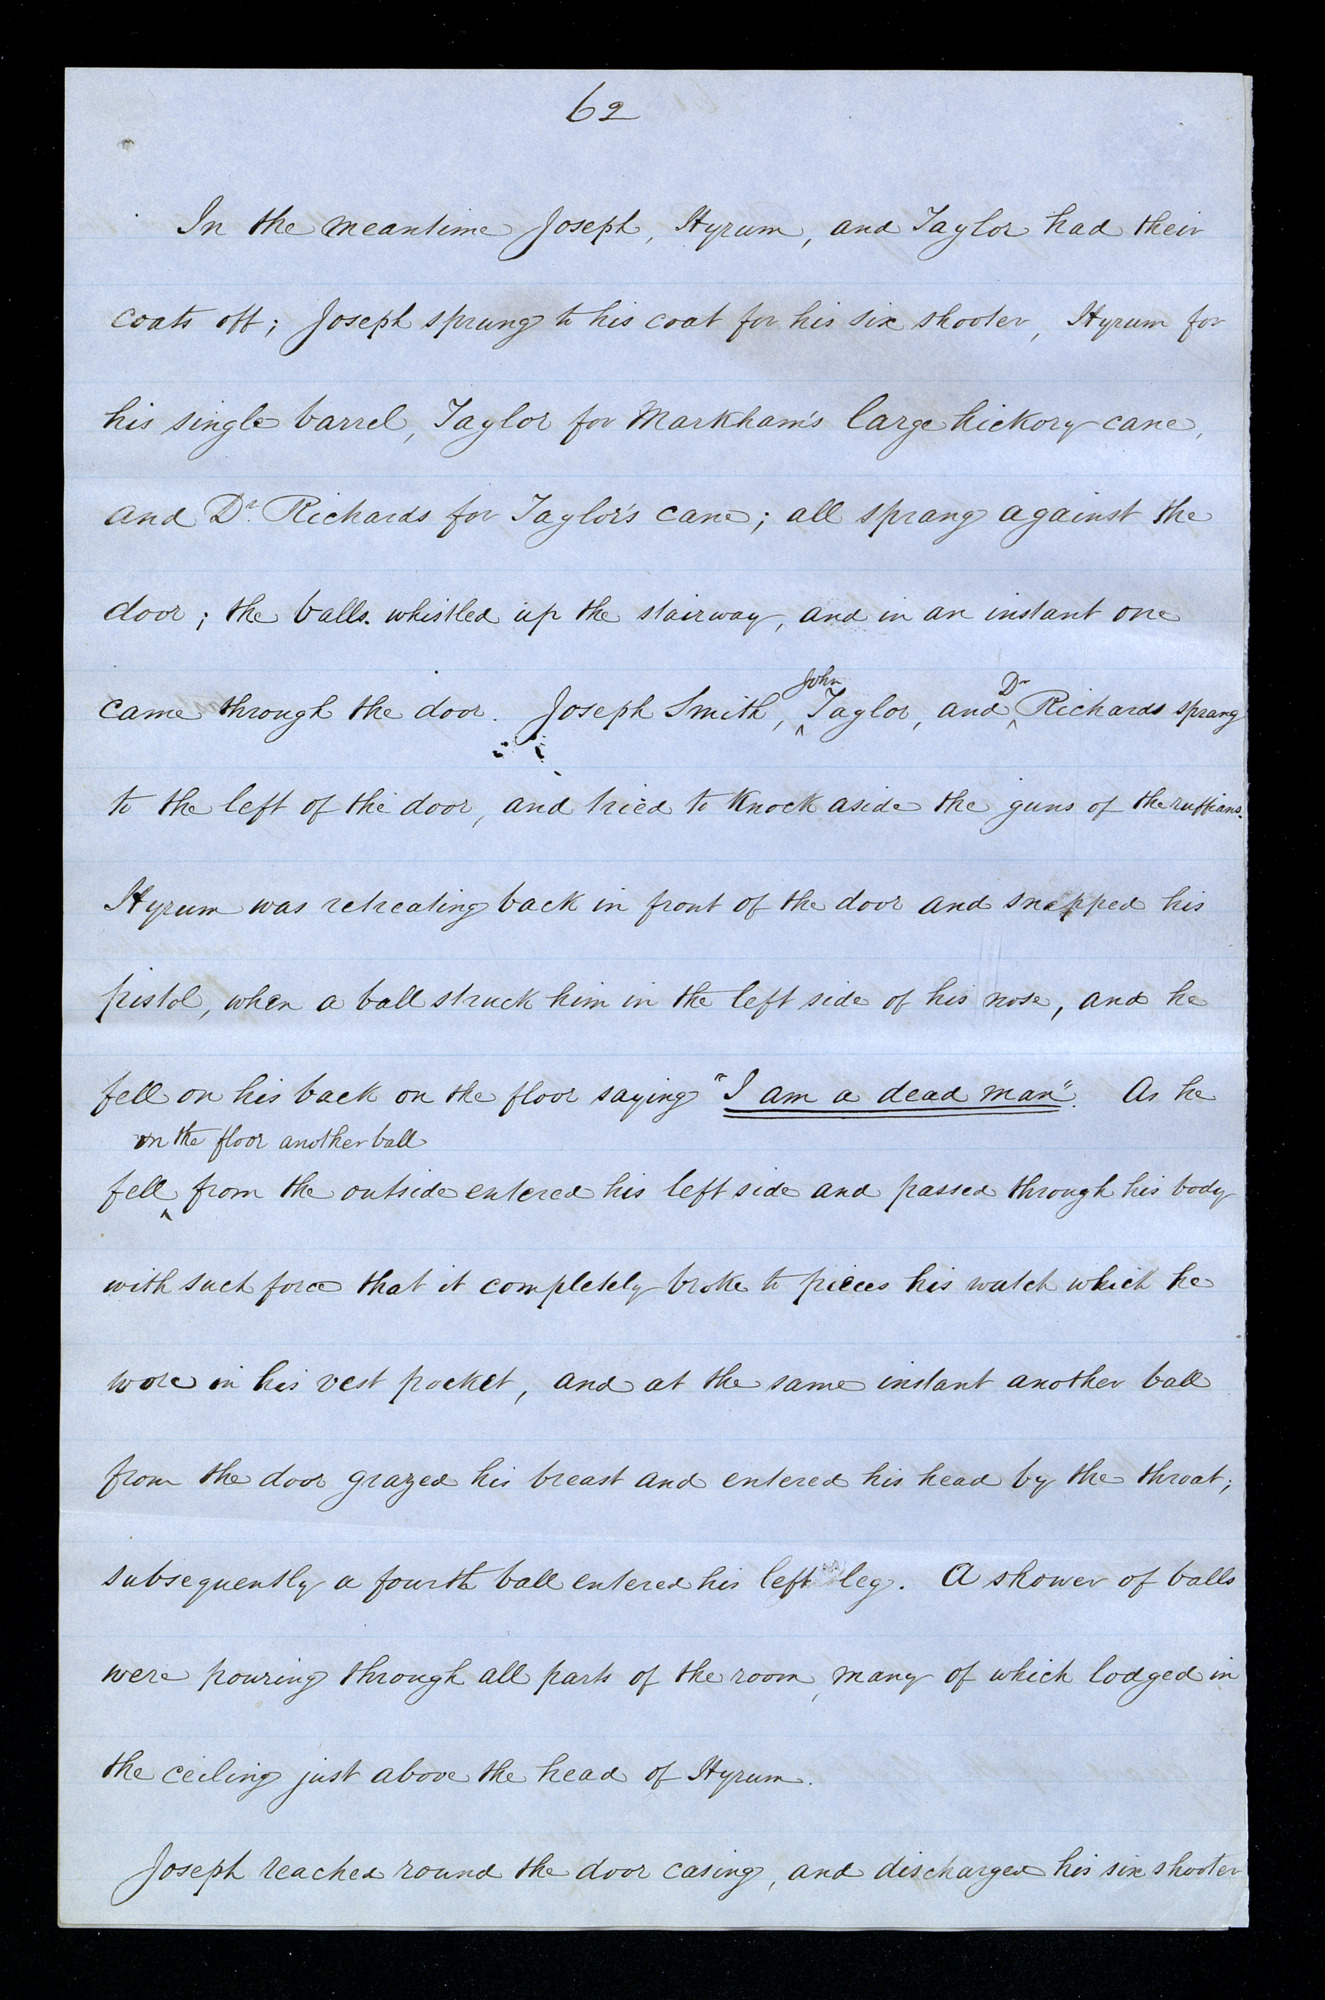 62
In the meantime Joseph, Hyrum, and Taylor had their
coats off; Joseph sprung to his coat for his six shooter, Hyrum for
his single barrel, Taylor for Markham's large hickory cane,
and Dr. Richards for Taylor's cane; all sprang against the
door; the balls whistled up the stairway, and in an instant one
John Dr
came through the door. Joseph Smith, ^ Taylor, and ^ Richards sprang
to the left of the door, and tried to knock aside the guns of the ruffians.
Hyrum was retreating back in front of the door and snapped his
pistol, when a ball struck him in the left side of his nose, and he
fell on his back on the floor saying "I am a dead man". As he
on the floor another ball
fell ^ from the outside entered his left side and passed through his body
with such force that it completely broke to pieces his watch which he
wore in his vest pocket, and at the same instant another ball
from the door grazed his breast and entered his head by the throat;
subsequently a fourth ball entered his left leg. A shower of balls
were pouring through all parts of the room, many of which lodged in
the ceiling just above the head of Hyrum.
Joseph reached round the door casing, and discharged his six shooter